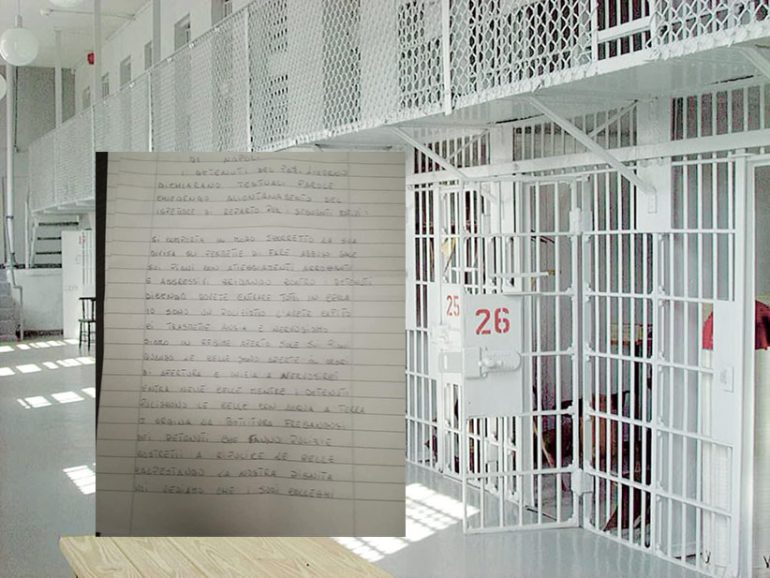 DI NAPOLI
I DETENUTI DEL
DICHIARANO TESTUALI PAROLE
CHIEDENDO ALLONTANAMENTO DEL
ISPETTORE DI REPARTO
SI COMPORTA IN MODO SCORRETTO LA SUA
DIVISA SI PERMETTE DI FARE ABBUSI SALE
SUI PIANI CON ATTEGGIAMENTI ARROGANTI
E AGGRESSIVI GRIDANDO CONTRO I DETENUTI
DICENDO DOVETE ENTRARE TUTTI IN CELLA
IO SONO UN POLIZIOTTO L'AVETE CAPITO
CI TRASMETTE ANSIA E NERVOSISMO
SIAMO IN REGIME APERTO SALE SUI PIANI
QUANDO LE CELLE SONO APERTE
DI APERTURA E INIZIA A
ENTRA NELLE CELLE MENTRE I DETENUTI
PULISCONO LE CELLE CON ACQUA A TERRA
E ORDINA LA BATTITURA FREGANDOSI
DEI DETENUTI CHE FANNO PULIZIE
COSTRETTI A RIPULIRE LE CELLE
CALPESTANDO LA NOSTRA DIGNITA
NOI VEDIAMO CHE I SUOI COLLEGHI
25
26